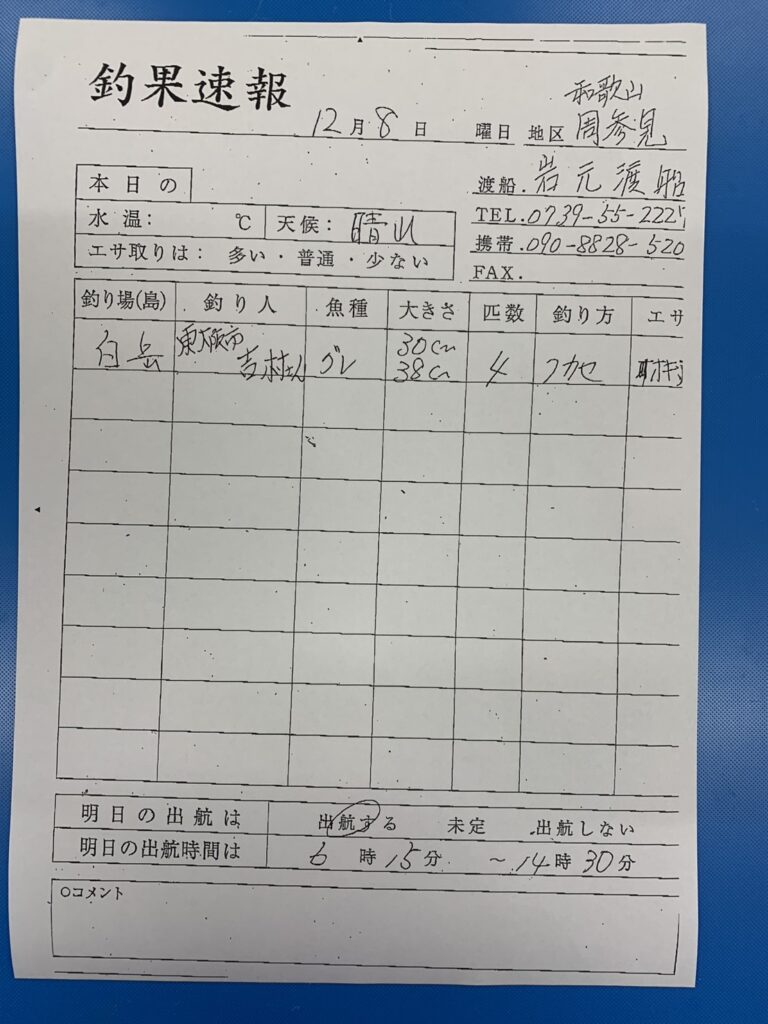 釣果速報
和歌山
12月8日 曜日 地区 周参見
渡船. 岩元渡船
TEL. 0739-55-2225
携帯. 090-8828-520
FAX.
本日の
水温: ℃ 天候: 晴れ
エサ取りは: 多い・普通・少ない
釣り場(島) 釣り人 魚種 大きさ 匹数 釣り方 エサ
白岳 東大阪市 吉村さん グレ 30cm 38cm 4 フカセ オキ
明日の出航は 出航する 未定 出航しない
明日の出航時間は 6時15分 ~14時30分
○コメント